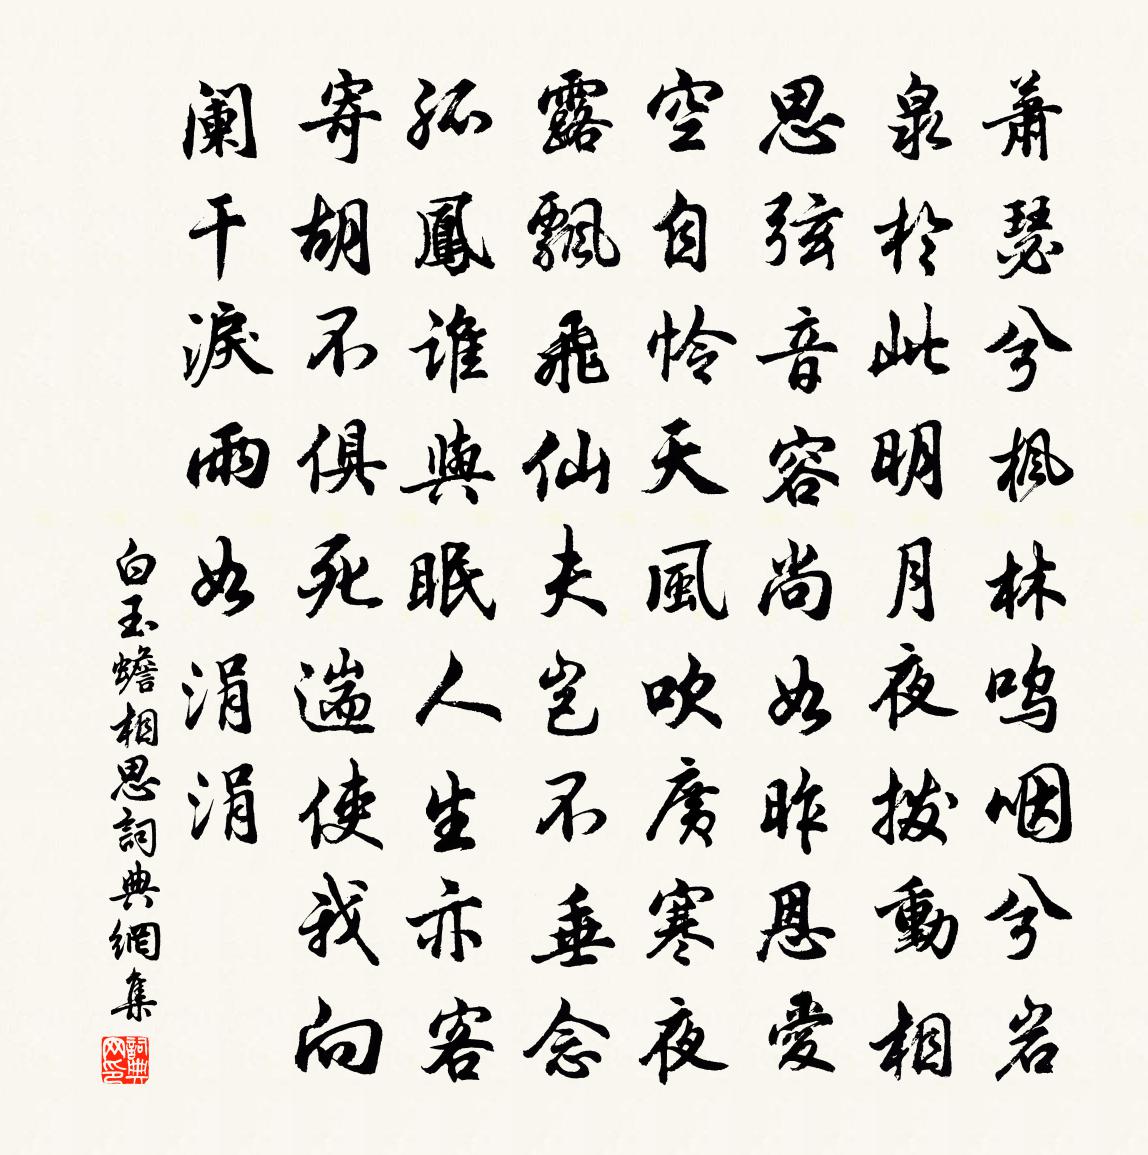 萧瑟兮枫林呜咽兮岩
泉於此明月夜拨動相
思弦音容尚如昨恩愛
空自怜天風吹廣寒夜
露飄飛仙夫岂不垂念
孤鳳谁與眠人生亦客
寄胡不俱死遄使我向
阑干淚雨如涓涓
白玉蟾相思詞典網集
詞典网印